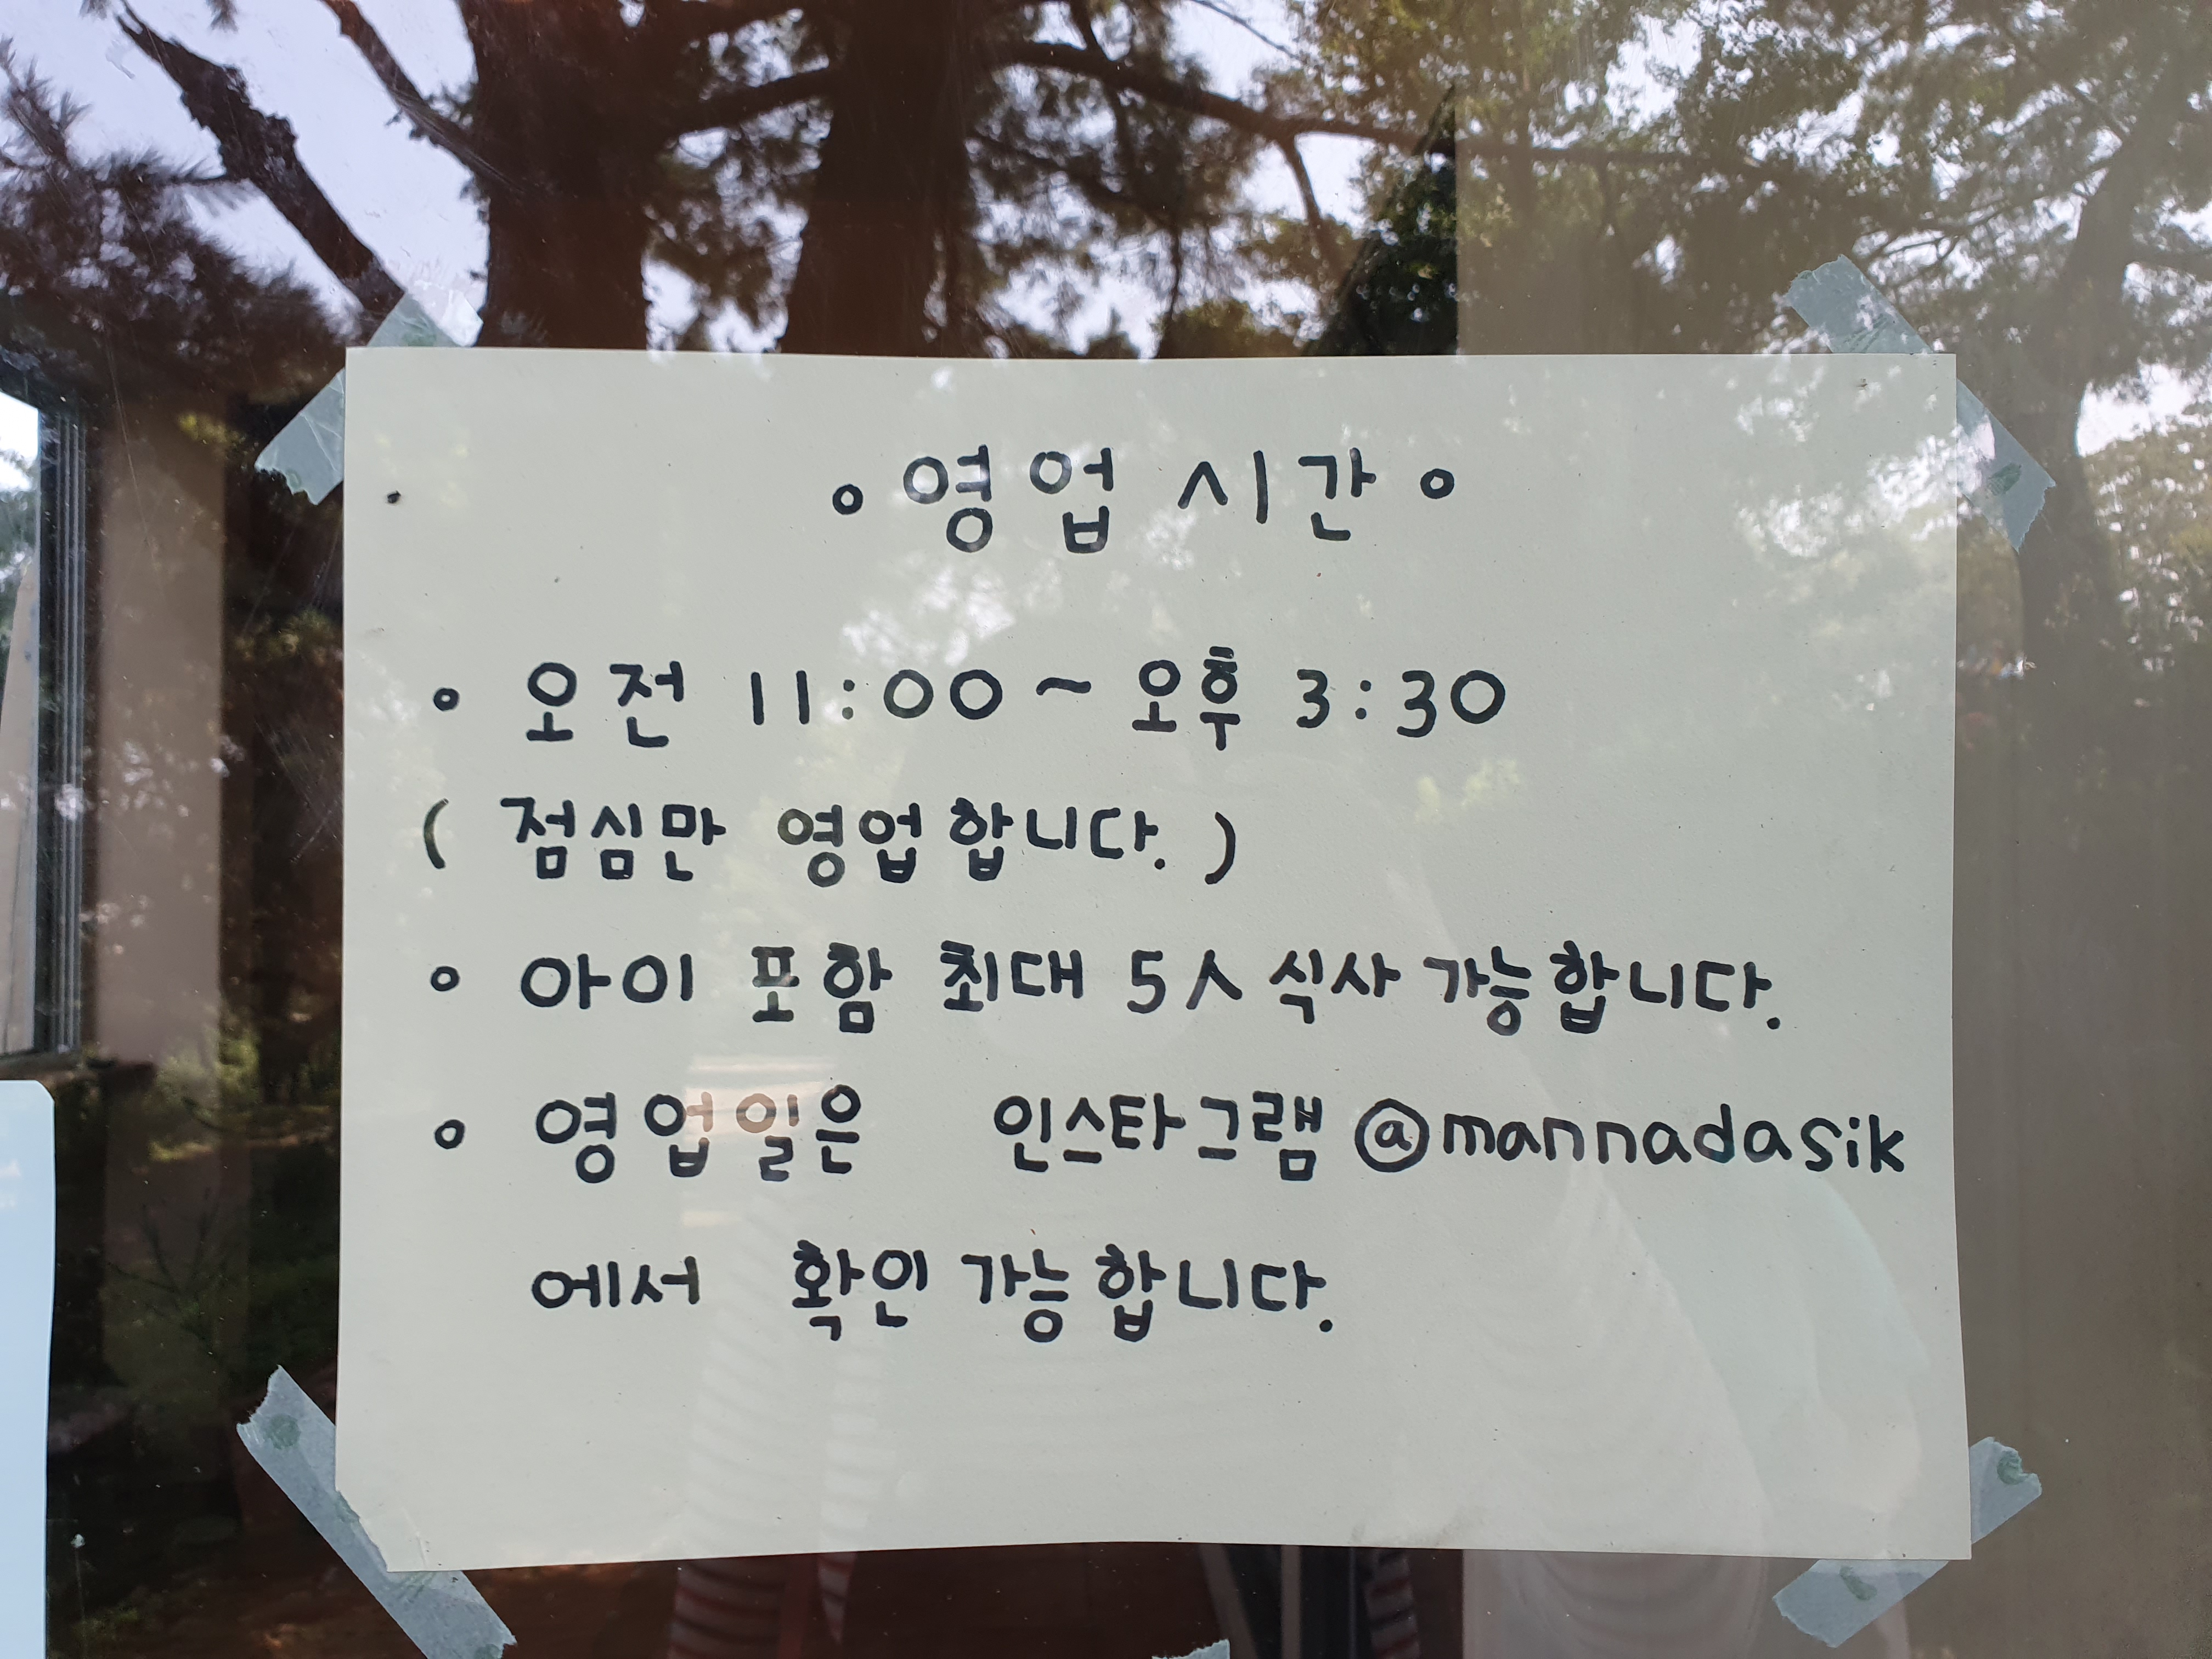 ◦ 영업 시간 ◦
◦ 오전 11:00 ~ 오후 3:30
( 점심만 영업합니다. )
◦ 아이 포함 최대 5人 식사 가능합니다.
◦ 영업일은 인스타그램 @mannadasik
에서 확인 가능합니다.